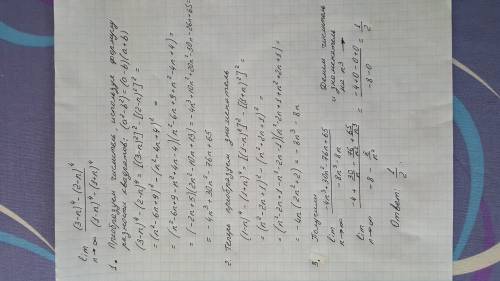 lim n→∞ ((3-n)⁴-(2-n)⁴)/((1-n)⁴-(1+n)⁴)
1. Преобразуем числитель, используя формулу
разности квадратов: (a²-b²)=(a-b)(a+b)
(3-n)⁴-(2-n)⁴ = [(3-n)²]²-[(2-n)²]² =
= (n²-6n+9)²-(n²-4n+4)² =
= (n²-6n+9-n²+4n-4)(n²-6n+9+n²-4n+4) =
= (-2n+5)(2n²-10n+13) = -4n³+10n²+20n²-50n-26n+65=
= -4n³+30n²-76n+65
2. Теперь преобразуем знаменатель
(1-n)⁴-(1+n)⁴ = [(1-n)²]²-[(1+n)²]² =
= (n²-2n+1)²-(n²+2n+1)² =
= (n²-2n+1-n²-2n-1)(n²-2n+1+n²+2n+1) =
= -4n(2n²+2) = -8n³-8n
3. Получим
lim n→∞ (-4n³+30n²-76n+65)/(-8n³-8n) Делим числитель
и знаменатель
на n³ →
lim n→∞ (-4+30/n-76/n²+65/n³)/(-8-8/n²) = (-4+0-0+0)/(-8-0) = 1/2
Ответ: 1/2.